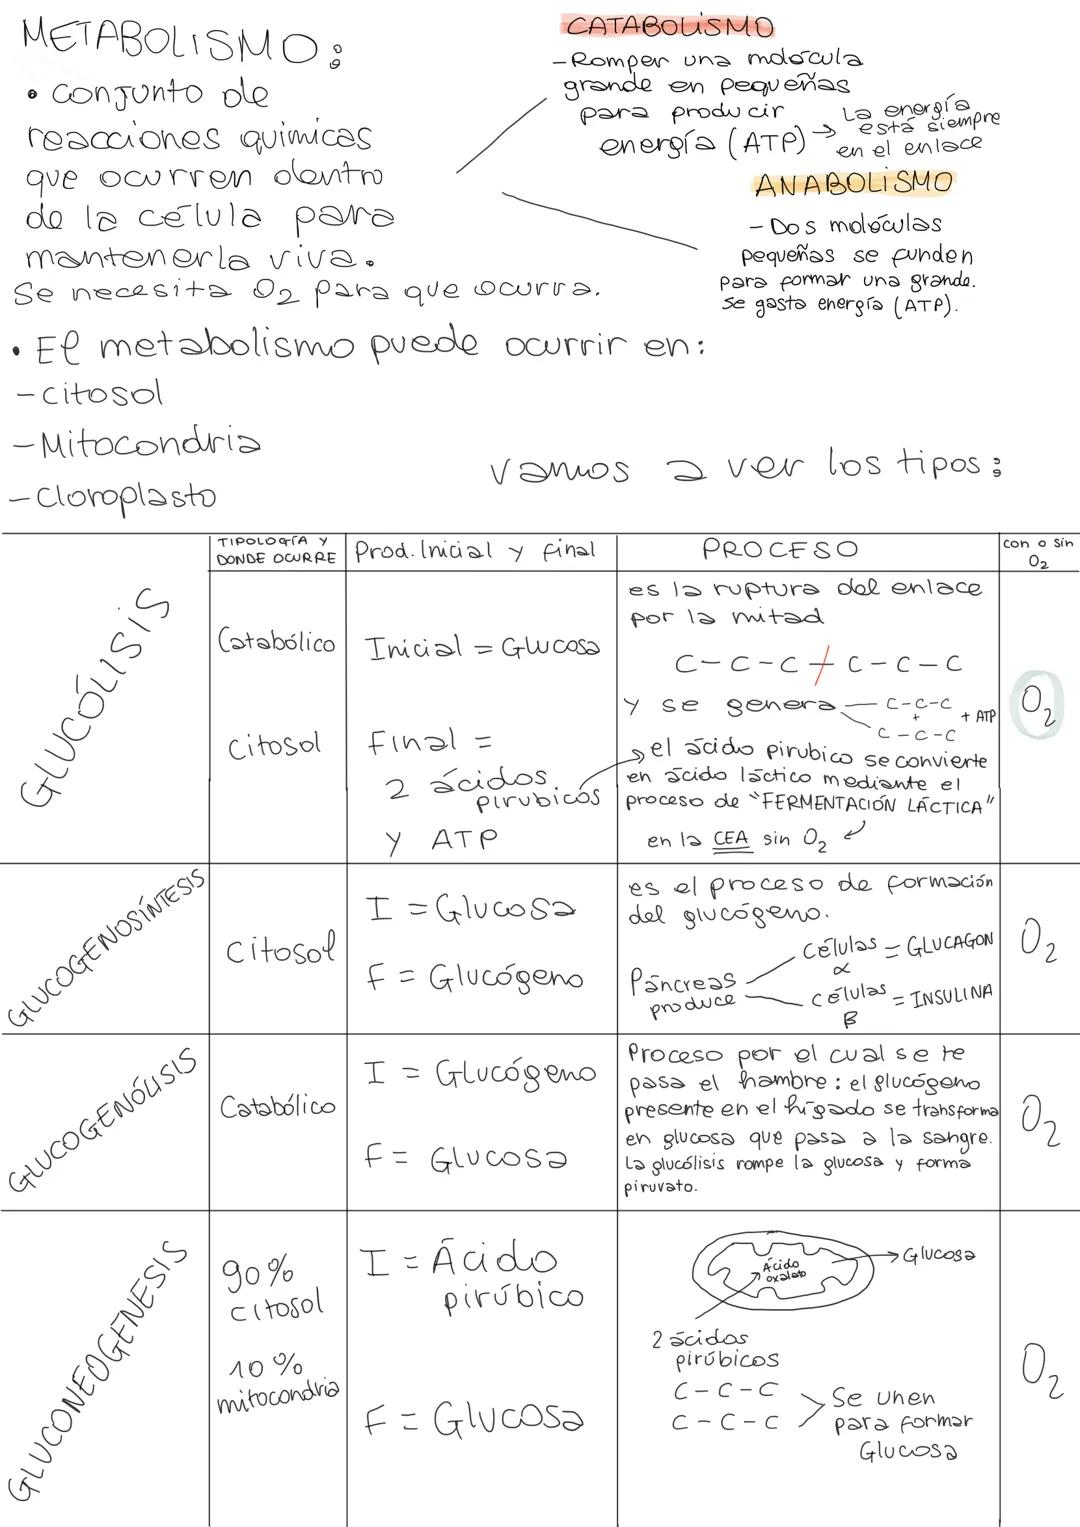 METABOLISMO:
• conjunto de
reacciones químicas
que ocurren dentro
de la célula para
mantenerla viva.
Se necesita O2 para que ocurra.
CATABOLISMO
- Romper una molécula
grande en pequeñas
para producir
energía (ATP) → La energía
está siempre
en el enlace
ANABOLISMO
- Dos moléculas
pequeñas se funden
para formar una grande.
Se gasta energía (ATP).
• El metabolismo puede ocurrir en:
- citosol
- Mitocondria
- Cloroplasto
vamos a ver los tipos:
TIPOLOGÍA Y
DONDE OCURRE
Prod. Inicial y final
PROCESO
con o sin
O2
GLUCÓLISIS
Catabólico
citosol
Inicial = Glucosa
Final =
2 ácidos
pirubicos
y ATP
es la ruptura del enlace
por la mitad
C-C-C/C-C-C
y se genera
C-C-C
+
C-C-C
+ ATP
el ácido pirubico se convierte
en ácido láctico mediante el
proceso de "FERMENTACIÓN LÁCTICA"
en la CEA sin O2
O2
GLUCOGENOSÍNTESIS
citosol
I = Glucosa
F = Glucógeno
es el proceso de formación
del glucógeno.
Páncreas
produce
células = GLUCAGON
α
células = INSULINA
β
O2
GLUCOGENÓLISIS
Catabólico
I = Glucógeno
F = Glucosa
Proceso por el cual se te
pasa el hambre: el glucógeno
presente en el hígado se transforma
en glucosa que pasa a la sangre.
La glucólisis rompe la glucosa y forma
piruvato.
O2
GLUCONEOGENESIS
90%
citosol
10%
mitocondria
I = Ácido
pirúbico
F = Glucosa
Ácido
oxalato
→ Glucosa
2 ácidos
pirúbicos
C-C-C
C-C-C
Se unen
para formar
Glucosa
O2